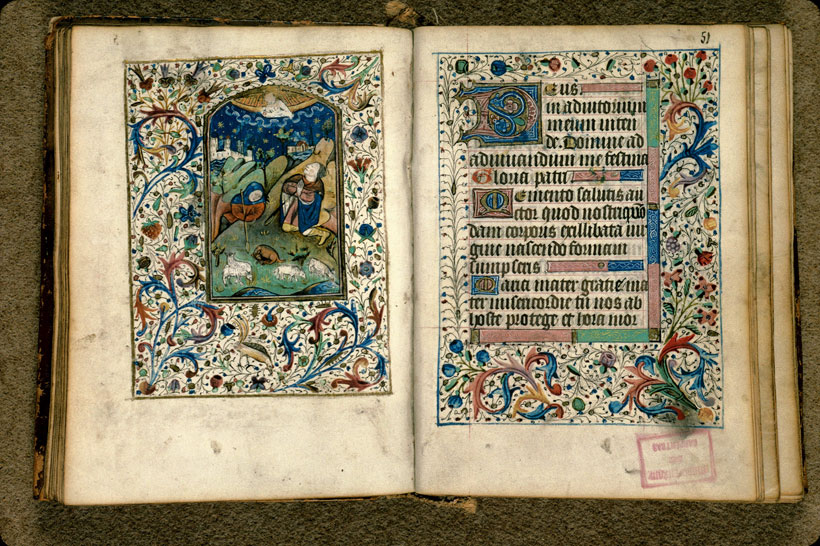 51
Deus
in adiutorium
meum inten
de. Domine ad
adiuuandum me festina
Gloria patri
Memento salutis au
ctor quod nostri quo
dam corporis ex illibata uir
gine nascendo formam
sumpseris
Maria mater gratie ma
ter misericordie tu nos ab
hoste protege et hora mor